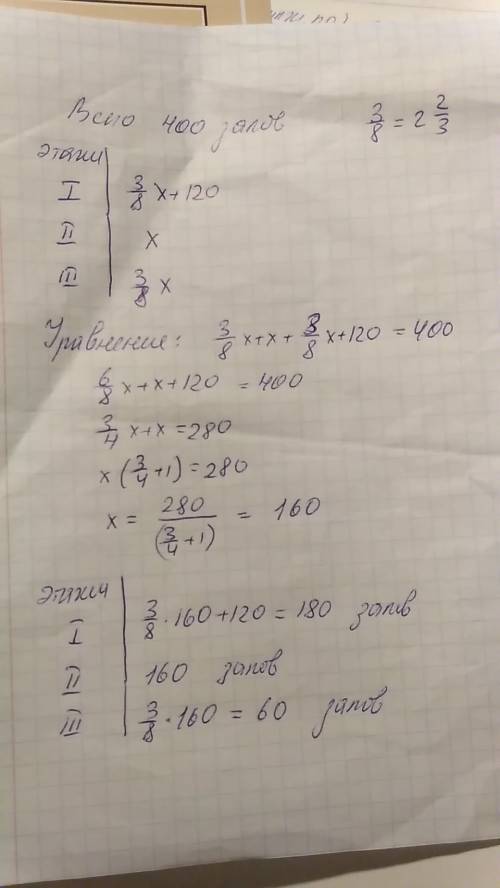 Всего 400 залов 3/8 = 2 2/3
этажи
I 3/8 x+120
II x
III 3/8 x
Уравнение: 3/8 x+x+ 3/8 x+120 = 400
6/8 x+x+120 = 400
3/4 x+x=280
x(3/4+1)=280
x = 280/(3/4+1) = 160
этажи
I 3/8·160+120=180 залов
II 160 залов
III 3/8·160 = 60 залов